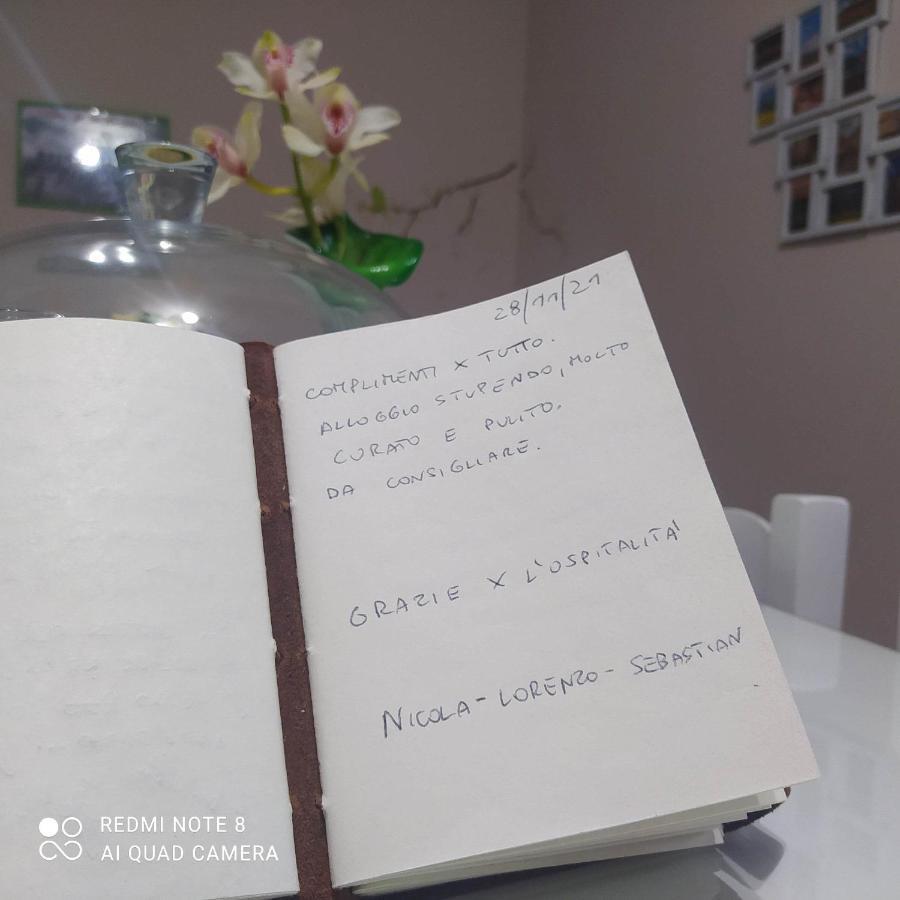 28/11/21
COMPLIMENTI X TUTTO.
ALLOGGIO STUPENDO, MOLTO
CURATO E PULITO.
DA CONSIGLIARE.
GRAZIE X L'OSPITALITÀ
NICOLA - LORENZO - SEBASTIAN
REDMI NOTE 8
AI QUAD CAMERA